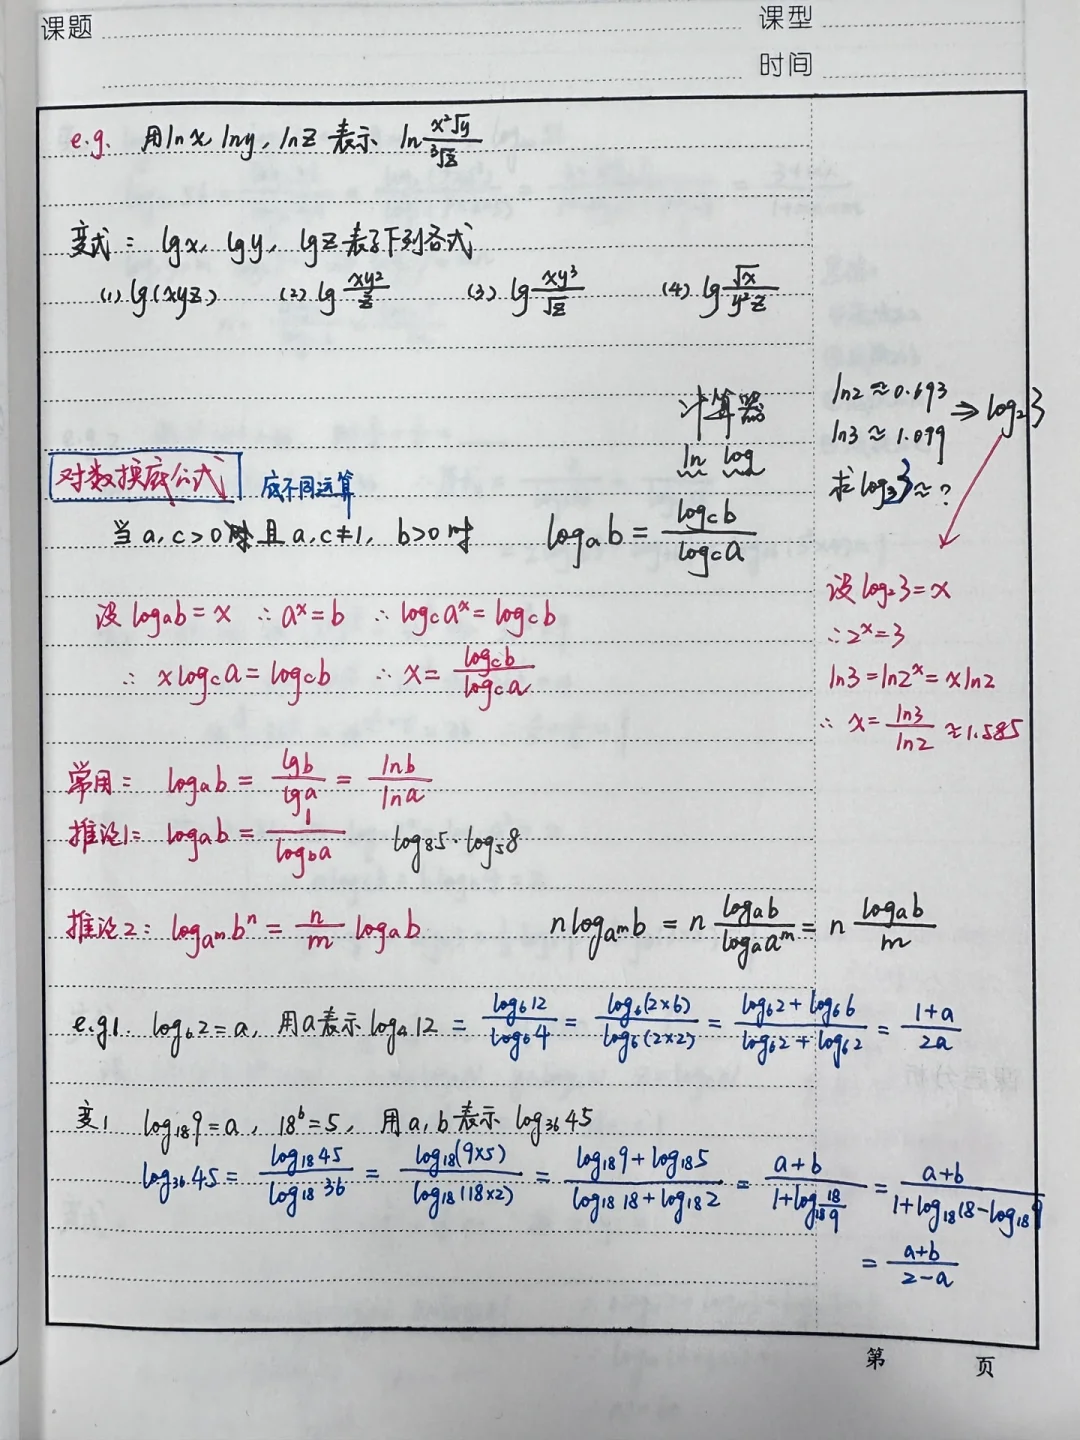 课题
课型
时间
e.g. 用lnx, lny, lnz 表示 ln x²√y / ³√z
变式: lgx, lgy, lgz 表示下列各式
(1) lg(xyz) (2) lg xy²/z (3) lg xy³/√z (4) lg √x / y²z
计算器
ln log
ln2≈0.693
ln3≈1.099
⇒ log₂3
求log₂3≈?
对数换底公式 底不同运算
当 a,c>0 且 a,c≠1, b>0时 logₐb = log_c b / log_c a
设 logₐb = x ∴ aˣ=b ∴ log_c aˣ = log_c b
∴ x log_c a = log_c b ∴ x = log_c b / log_c a
设log₂3=x
∴2ˣ=3
ln3=ln2ˣ=xln2
∴ x= ln3/ln2 ≈1.585
常用: logₐb = lgb/lga = lnb/lna
推论1: logₐb = 1/log_b a log₈5·log₅8
推论2: log_{aᵐ} bⁿ = n/m logₐb n log_{aᵐ} b = n logₐb / logₐaᵐ = n logₐb / m
e.g1. log₆2=a, 用a表示log₄12 = log₆12 / log₆4 = log₆(2×6) / log₆(2×2) = (log₆2+log₆6) / (log₆2+log₆2) = (1+a) / 2a
变1 log₁₈9=a, 18ᵇ=5, 用a,b表示 log₃₆45
log₃₆45 = log₁₈45 / log₁₈36 = log₁₈(9×5) / log₁₈(18×2) = (log₁₈9+log₁₈5) / (log₁₈18+log₁₈2) = (a+b) / (1+log₁₈ 18/9) = (a+b) / (1+log₁₈18-log₁₈9)
= (a+b) / (2-a)
第 页